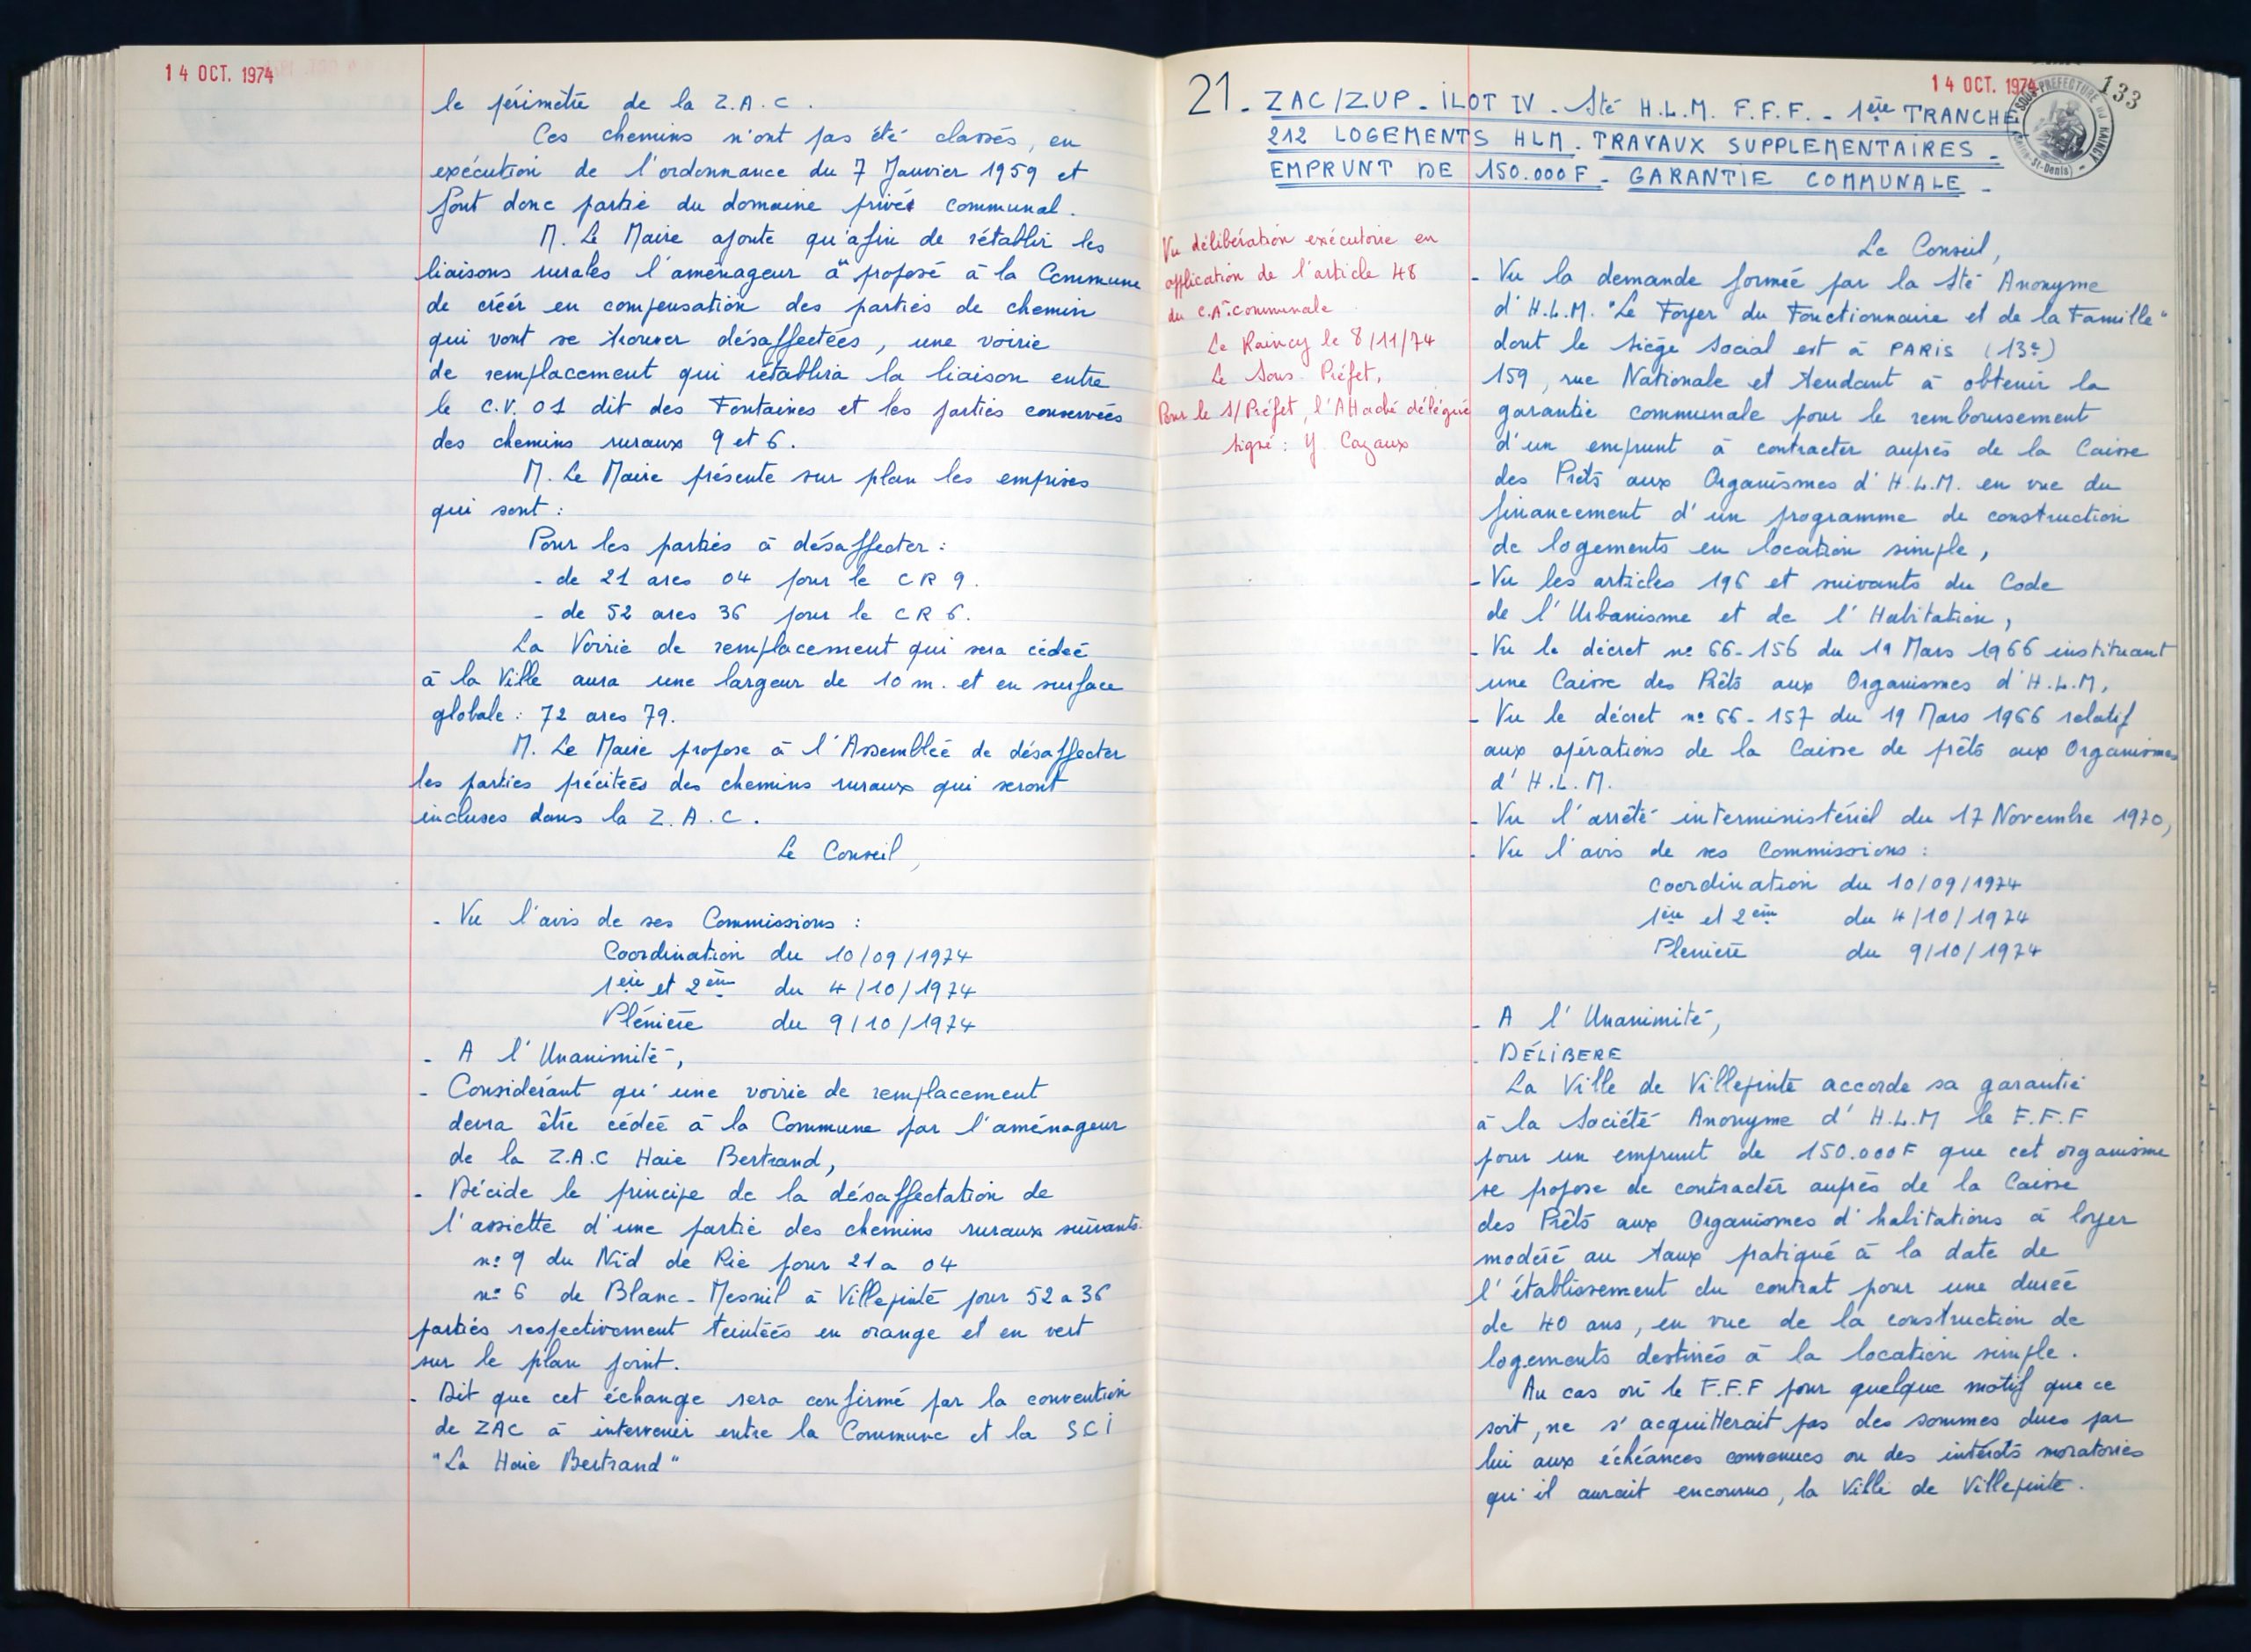 14 OCT. 1974
le périmètre de la Z.A.C.
Ces chemins n'ont pas été classés, en
exécution de l'ordonnance du 7 Janvier 1959 et
font donc partie du domaine privé communal.
M. Le Maire ajoute qu'afin de rétablir les
liaisons rurales l'aménageur a proposé à la Commune
de créér en compensation des parties de chemin
qui vont se trouver désaffectées, une voirie
de remplacement qui rétablira la liaison entre
le C.V. 01 dit des Fontaines et les parties conservées
des chemins ruraux 9 et 6.
M. Le Maire présente sur plan les emprises
qui sont :
Pour les parties à désaffecter :
- de 21 ares 04 pour le CR 9.
- de 52 ares 36 pour le CR 6.
La Voirie de remplacement qui sera cédée
à la Ville aura une largeur de 10 m. et en surface
globale : 72 ares 79.
M. Le Maire propose à l'Assemblée de désaffecter
les parties précitées des chemins ruraux qui seront
incluses dans la Z.A.C.
Le Conseil,
- Vu l'avis de ses Commissions :
Coordination du 10/09/1974
1ère et 2ème du 4/10/1974
Plénière du 9/10/1974
- A l'Unanimité,
- Considérant qu'une voirie de remplacement
devra être cédée à la Commune par l'aménageur
de la Z.A.C Haie Bertrand,
- Décide le principe de la désaffectation de
l'assiette d'une partie des chemins ruraux suivants.
n° 9 du Nid de Pie pour 21a 04
n° 6 de Blanc-Mesnil à Villepinte pour 52 a 36
parties respectivement teintées en orange et en vert
sur le plan joint.
- Dit que cet échange sera confirmé par la convention
de ZAC à intervenir entre la Commune et la SCI
"La Haie Bertrand"
14 OCT. 1974
133
SOUS-PREFECTURE DU RAINCY
(Seine-St-Denis)
21. ZAC/ZUP. ILOT IV. Sté H.L.M. F.F.F. - 1ère TRANCHE
212 LOGEMENTS HLM. TRAVAUX SUPPLEMENTAIRES -
EMPRUNT DE 150.000F - GARANTIE COMMUNALE -
Vu délibération exécutoire en
application de l'article 48
du C.A. communale
Le Raincy le 8/11/74
Le Sous-Préfet,
Pour le S/Préfet, l'Attaché délégué
signé : Y. Cazaux
Le Conseil,
- Vu la demande formée par la Sté Anonyme
d'H.L.M. "Le Foyer du Fonctionnaire et de la Famille"
dont le siège social est à PARIS (13e)
159, rue Nationale et tendant à obtenir la
garantie communale pour le remboursement
d'un emprunt à contracter auprès de la Caisse
des Prêts aux Organismes d'H.L.M. en vue du
financement d'un programme de construction
de logements en location simple,
- Vu les articles 196 et suivants du Code
de l'Urbanisme et de l'Habitation,
- Vu le décret n° 66-156 du 19 Mars 1966 instituant
une Caisse des Prêts aux Organismes d'H.L.M,
- Vu le décret n° 66-157 du 19 Mars 1966 relatif
aux opérations de la Caisse de prêts aux Organismes
d'H.L.M.
- Vu l'arrêté interministériel du 17 Novembre 1970,
- Vu l'avis de ses Commissions :
Coordination du 10/09/1974
1ère et 2ème du 4/10/1974
Plenière du 9/10/1974
- A l'Unanimité,
- DÉLIBERE
La Ville de Villepinte accorde sa garantie
à la Société Anonyme d'H.L.M le F.F.F
pour un emprunt de 150.000F que cet organisme
se propose de contracter auprès de la Caisse
des Prêts aux Organismes d'habitations à loyer
modéré au taux pratiqué à la date de
l'établissement du contrat pour une durée
de 40 ans, en vue de la construction de
logements destinés à la location simple.
Au cas où le F.F.F pour quelque motif que ce
soit, ne s'acquitterait pas des sommes dues par
lui aux échéances convenues ou des intérêts moratoires
qu'il aurait encourus, la Ville de Villepinte.